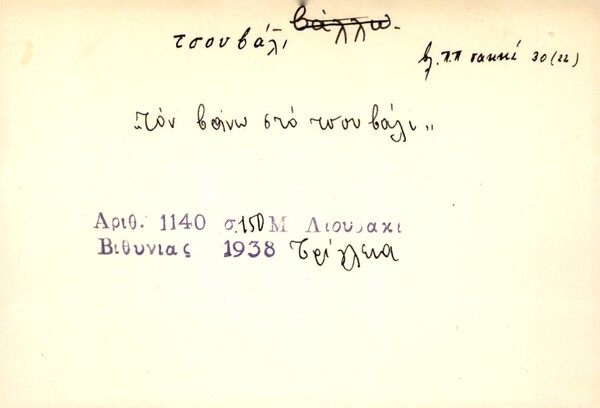 τσουβάλι βάλλω.
βλ. Π.Π σακκί 30 (22)
„Τὸν βάνω στὸ τσουβάλι„
Αριθ. 1140 σ.150 Μ Λιουδακι
Βιθυνιας 1938 Τρίγλεια